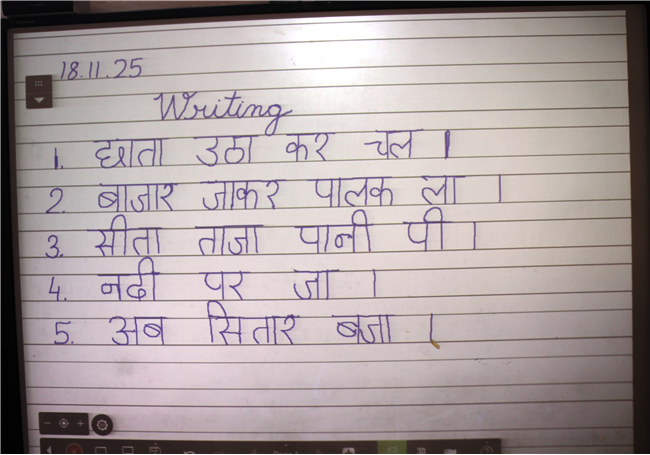 18.11.25
Writing
1. छाता उठा कर चल ।
2. बाजार जाकर पालक ला ।
3. सीता ताजा पानी पी ।
4. नदी पर जा ।
5. अब सितार बजा ।